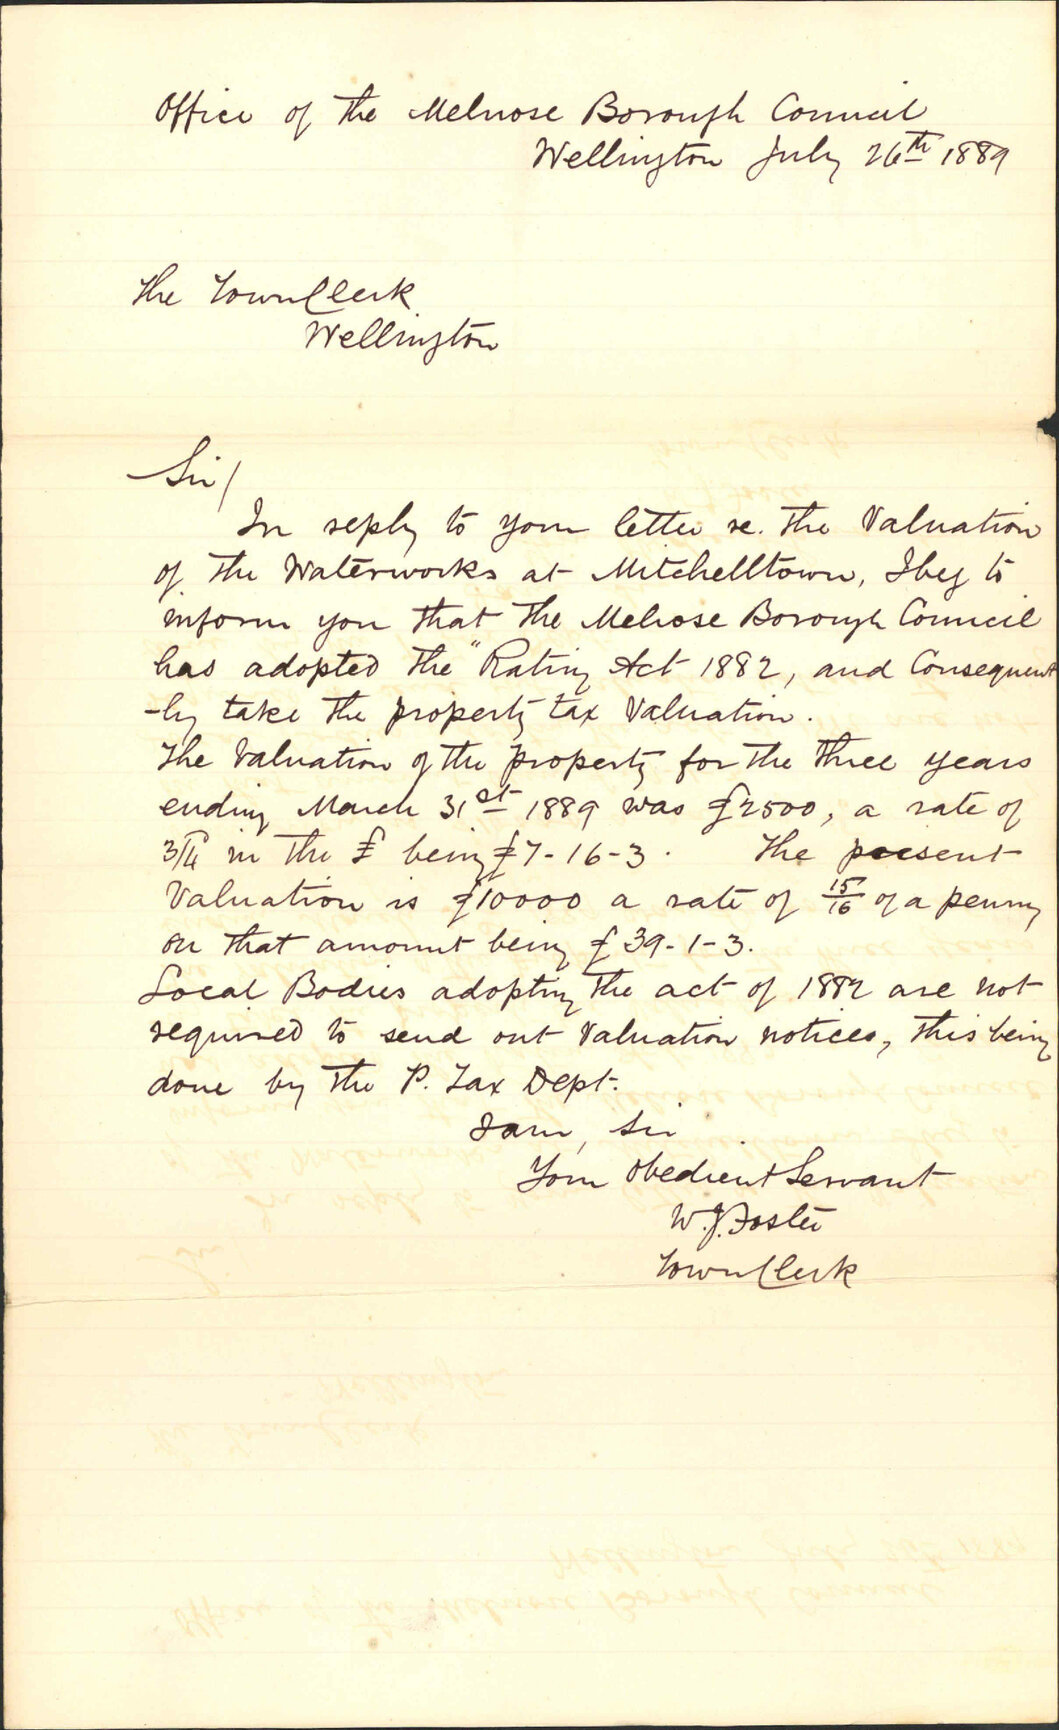 Office of the Melrose Borough Council
Wellington July 26th 1889
The Town Clerk
Wellington
Sir/
In reply to your letter re. the Valuation
of the Waterworks at Mitchelltown, I beg to
inform you that the Melrose Borough Council
has adopted the "Rating Act 1882, and Consequent
-ly take the property tax Valuation.
The Valuation of the property for the three years
ending March 31st 1889 was £2500, a rate of
3/4 in the £ being £7-16-3. The present
Valuation is £10000 a rate of 15/16 of a penny
on that amount being £39-1-3.
Local Bodies adopting the act of 1882 are not
required to send out Valuation notices, this being
done by the P. Tax Dept.
I am, Sir
Your Obedient Servant
W.J. Foster
Town Clerk